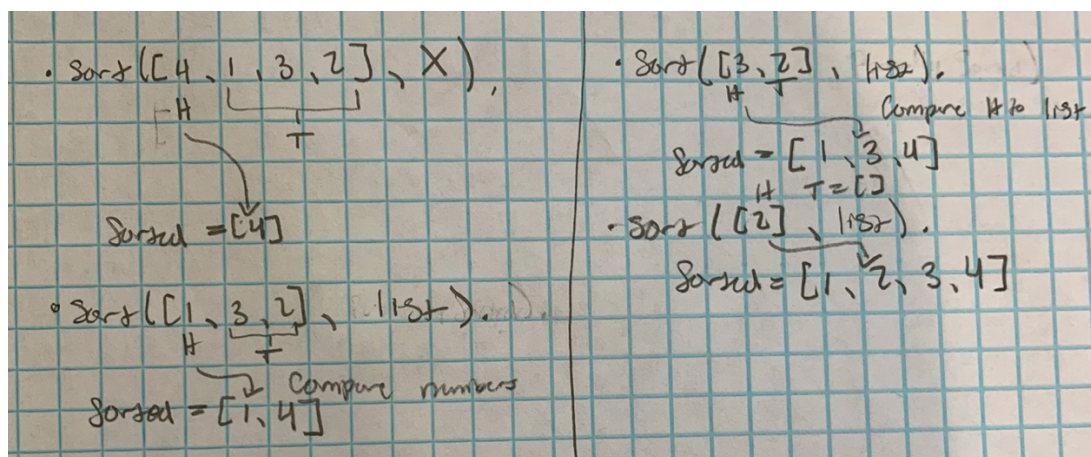 · Sort([4, 1, 3, 2], X),
H
T
Sorted = [4]
· Sort([1, 3, 2], list).
H T
Compare numbers
Sorted = [1, 4]
· Sort([3, 2], list).
H T
Compare H to list
Sorted = [1, 3, 4]
H T=[]
· Sort([2], list).
Sorted = [1, 2, 3, 4]